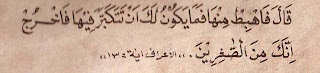 قَالَ فَاهْبِطْ مِنْهَا فَمَا يَكُونُ لَكَ اَنْ تَتَكَبَّرَ فِيْهَا فَاخْرُجْ
اِنَّكَ مِنَ الصّٰغِرِيْنَ .،، الاعراف اية ١٣،،